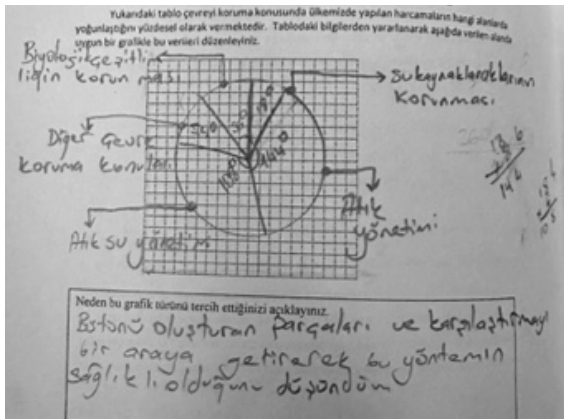 Yukarıdaki tablo çevreyi koruma konusunda ülkemizde yapılan harcamaların hangi alanlarda
yoğunlaştığını yüzdesel olarak vermektedir. Tablodaki bilgilerden yararlanarak aşağıda verilen alanda
uygun bir grafikle bu verileri düzenleyiniz.
Biyolojik çeşitli
liğin korun ması
su kaynaklarıklarının
korunması
Diğer çevre
koruma konuları
108°
144°
Atık
yönetimi
Atık su yönetimi
Neden bu grafik türünü tercih ettiğinizi açıklayınız.
Bütünü oluşturan parçaları ve karşılaştırmayı
bir araya getirerek bu yöntemin
sağlıklı olduğunu düşündüm